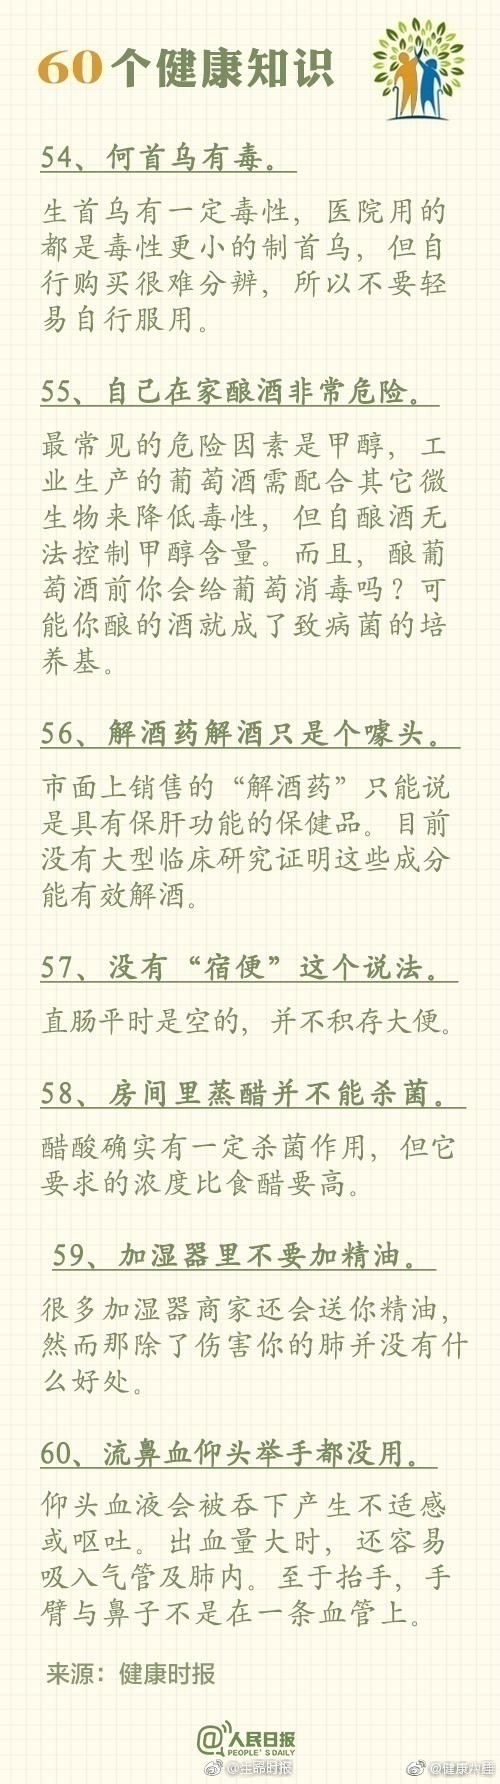 60个健康知识
54、何首乌有毒。
生首乌有一定毒性，医院用的
都是毒性更小的制首乌，但自
行购买很难分辨，所以不要轻
易自行服用。
55、自己在家酿酒非常危险。
最常见的危险因素是甲醇，工
业生产的葡萄酒需配合其它微
生物来降低毒性，但自酿酒无
法控制甲醇含量。而且，酿葡
萄酒前你会给葡萄消毒吗？可
能你酿的酒就成了致病菌的培
养基。
56、解酒药解酒只是个噱头。
市面上销售的“解酒药”只能说
是具有保肝功能的保健品。目前
没有大型临床研究证明这些成分
能有效解酒。
57、没有“宿便”这个说法。
直肠平时是空的，并不积存大便。
58、房间里蒸醋并不能杀菌。
醋酸确实有一定杀菌作用，但它
要求的浓度比食醋要高。
59、加湿器里不要加精油。
很多加湿器商家还会送你精油，
然而那除了伤害你的肺并没有什
么好处。
60、流鼻血仰头举手都没用。
仰头血液会被吞下产生不适感
或呕吐。出血量大时，还容易
吸入气管及肺内。至于抬手，手
臂与鼻子不是在一条血管上。
来源：健康时报
@人民日报
PEOPLE'S DAILY
@生命时报